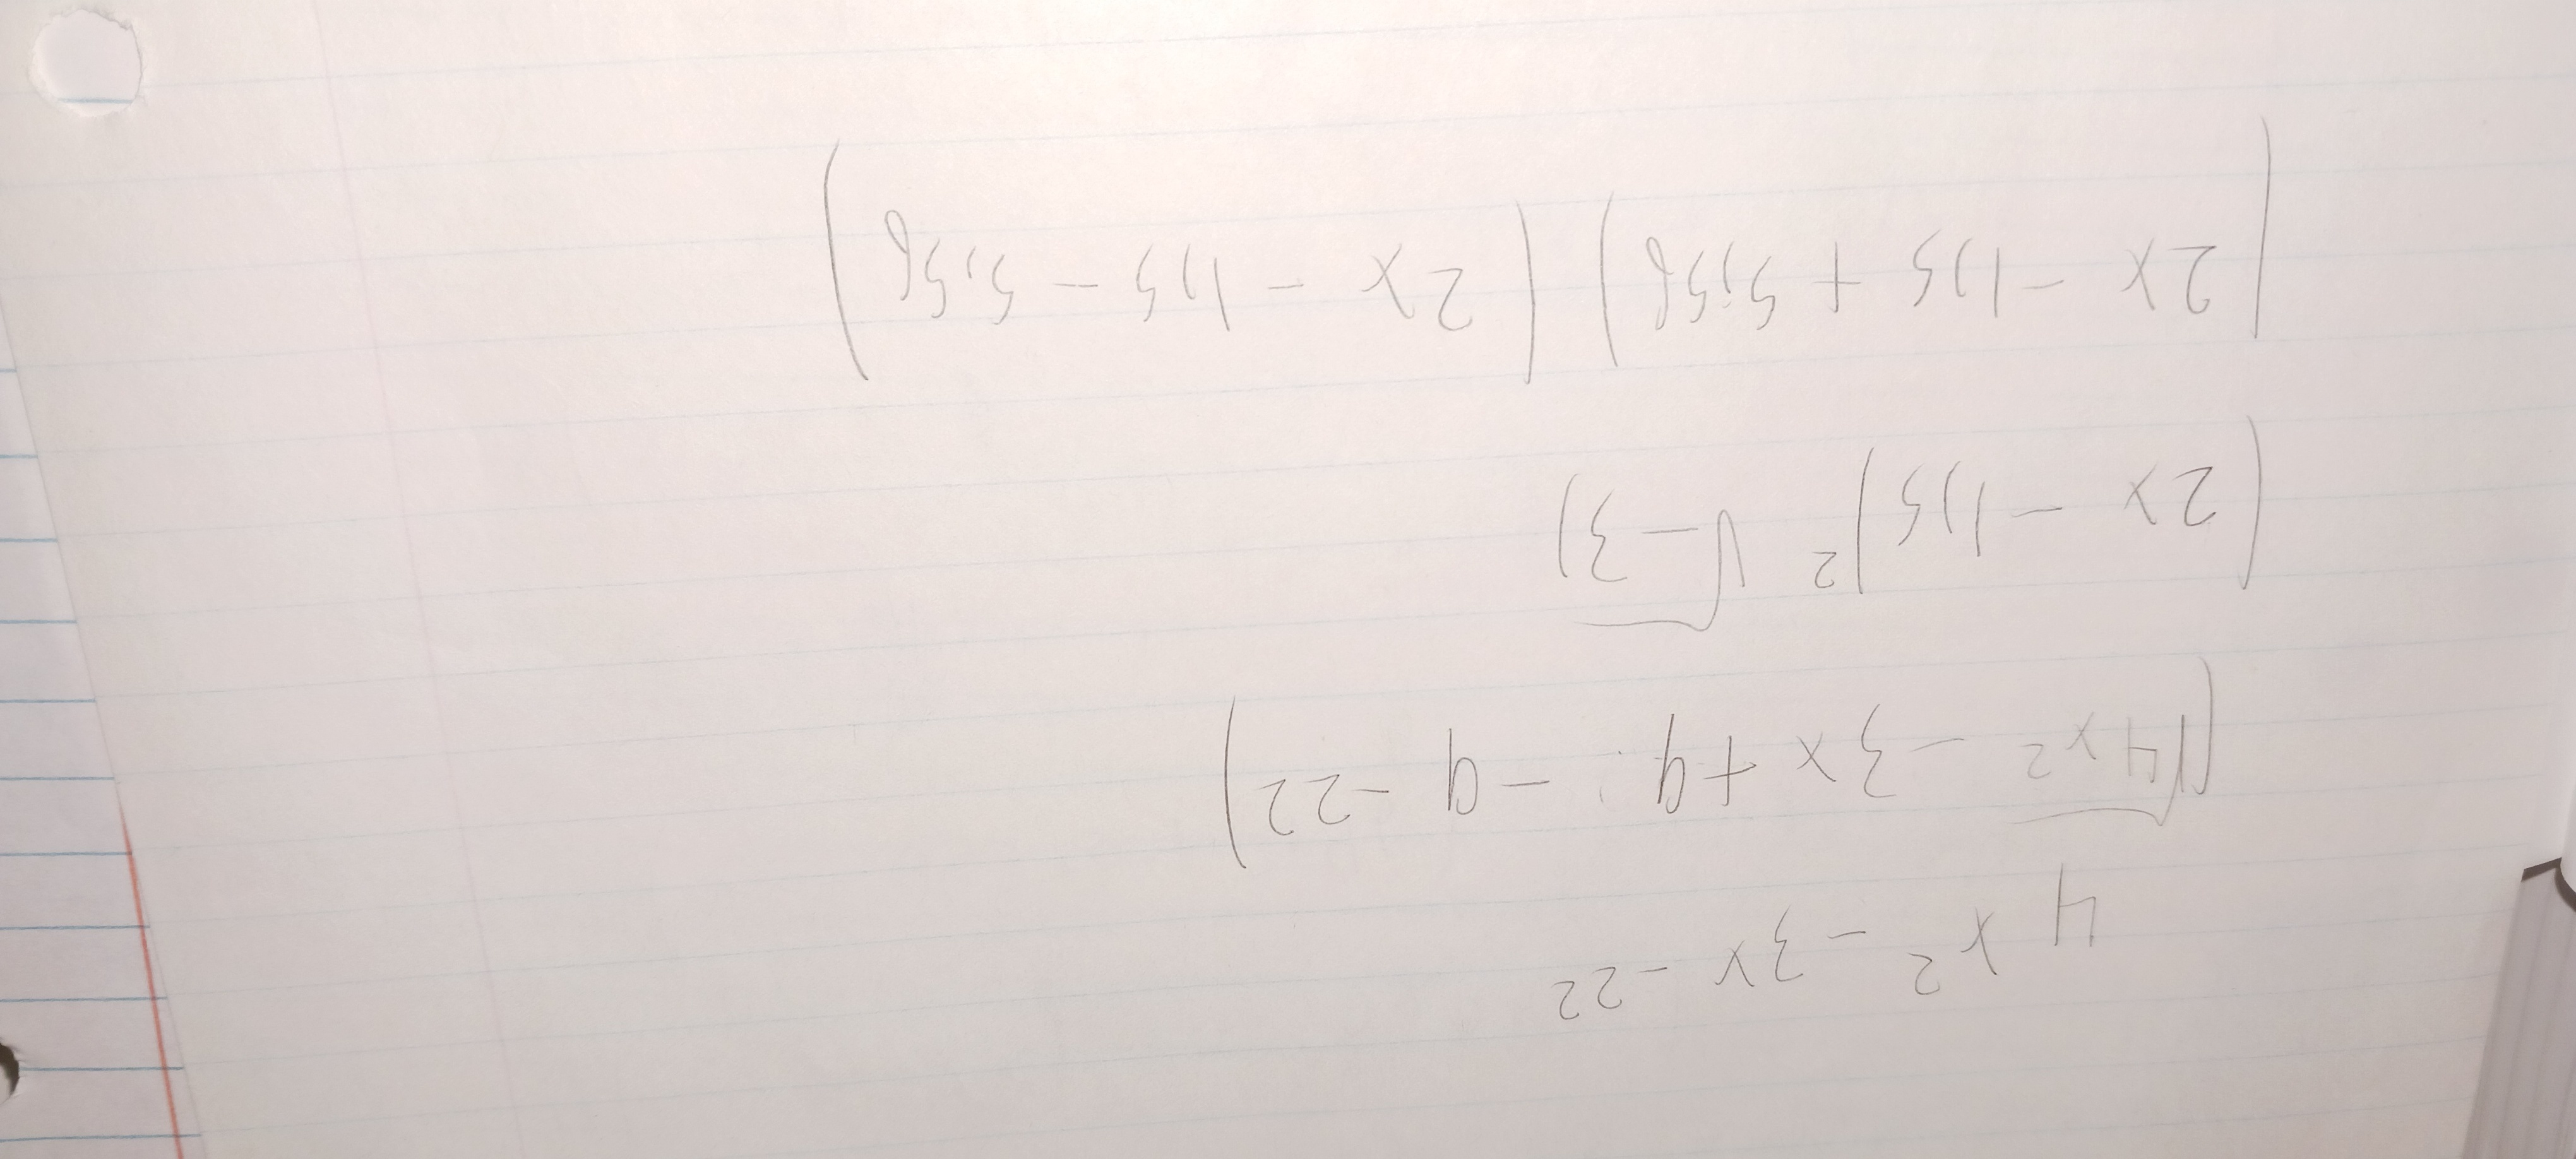 4x² - 3x - 22
(√4x² - 3x + 9 - 9 - 22)
(2x - 1,5)² √-3)
(2x - 1,5 + 5,56)(2x - 1,5 - 5,56)